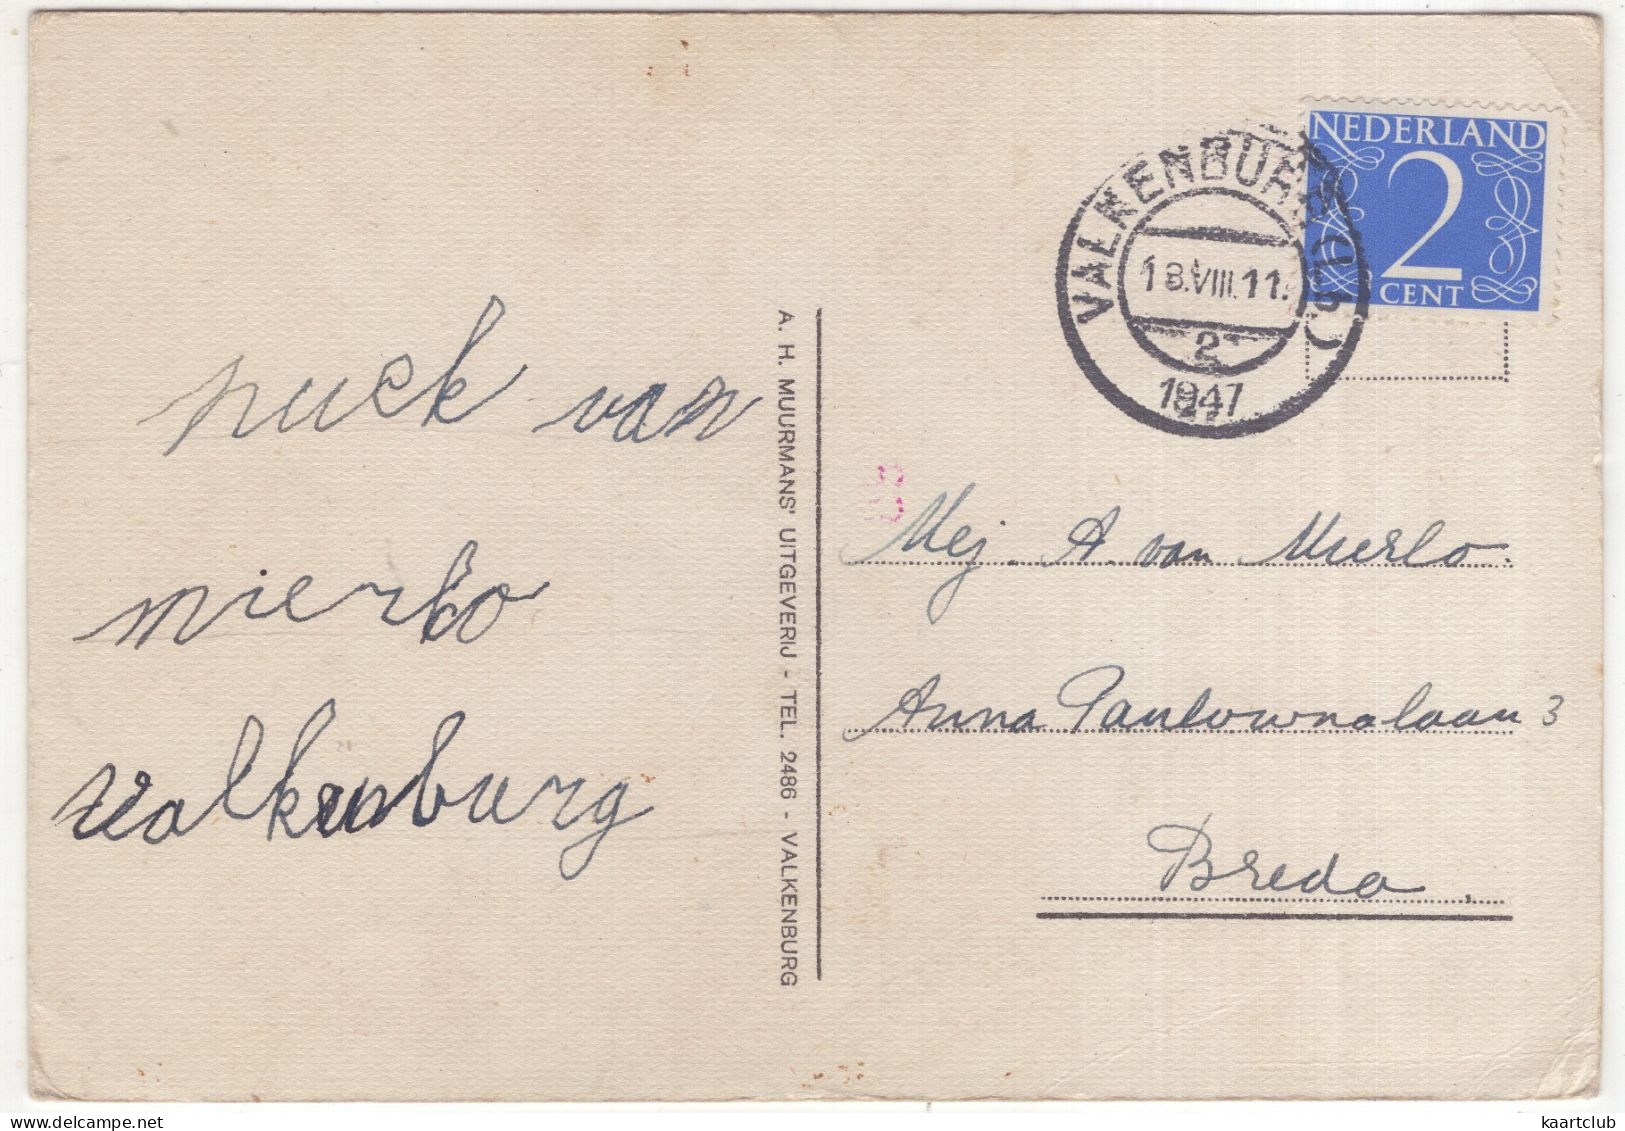 puck van
mierlo
valkenburg
A. H. MUURMANS' UITGEVERIJ - TEL. 2486 - VALKENBURG
NEDERLAND
2
CENT
VALKENBURG (LB.)
18.VIII.11.
2
1947
Mej. A. van Mierlo.
Anna Paulownalaan 3
Breda.
kaartclub